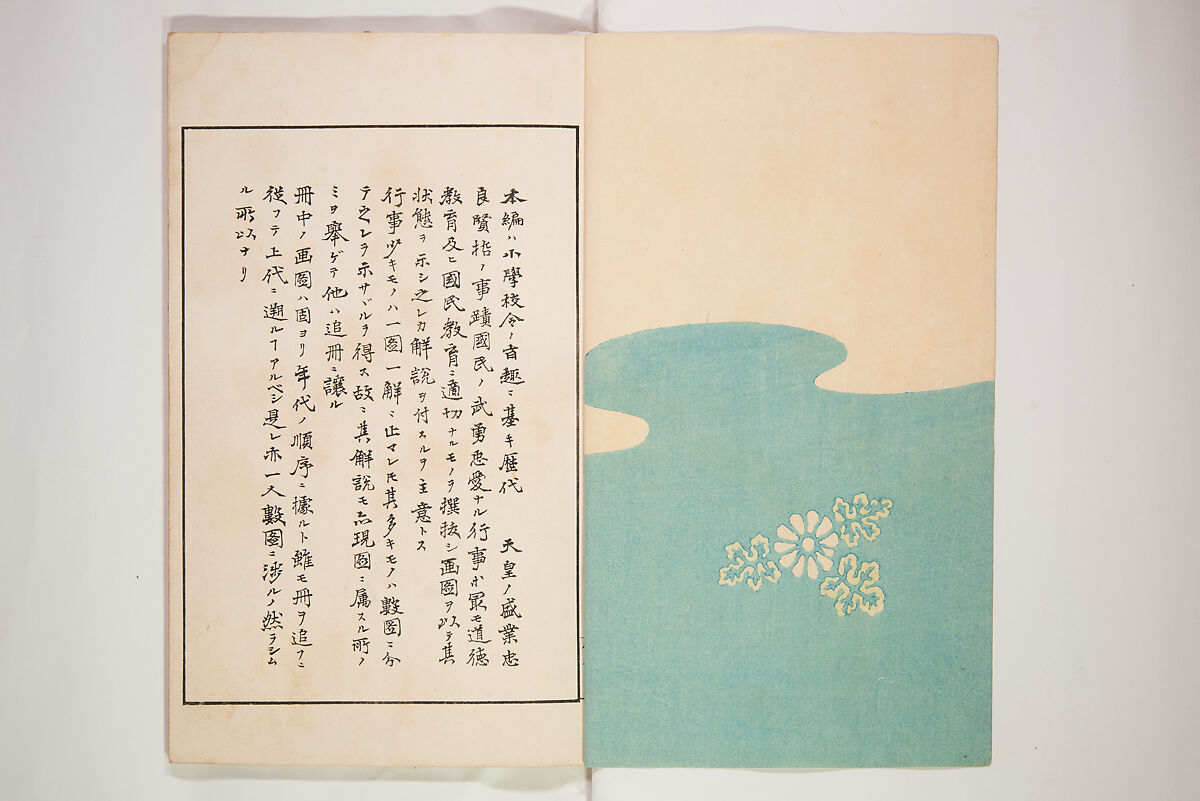 本編ハ小學校令ノ旨趣ニ基キ歴代　天皇ノ盛業忠
良賢哲ノ事蹟國民ノ武勇忠愛ナル行事ホ最モ道徳
教育及ヒ國民教育ニ適切ナルモノヲ撰抜シ画圖ヲ以テ其
状態ヲ示シ之レカ解説ヲ付スルヲ主意トス
行事少キモノハ一圖一解ニ止マレ𪜈其多キモノハ數圖ニ分
テ之レヲ示サヾルヲ得ス故ニ其解説モ亦現圖ニ属スル所ノ
ミヲ舉ゲテ他ハ追冊ニ讓ル
冊中ノ画圖ハ固ヨリ年代ノ順序ニ據ルト雖モ冊ヲ追フニ
従フテ上代ニ遡ルヿアルベシ是レ亦一人數圖ニ渉ルノ然ラシム
ル所以ナリ